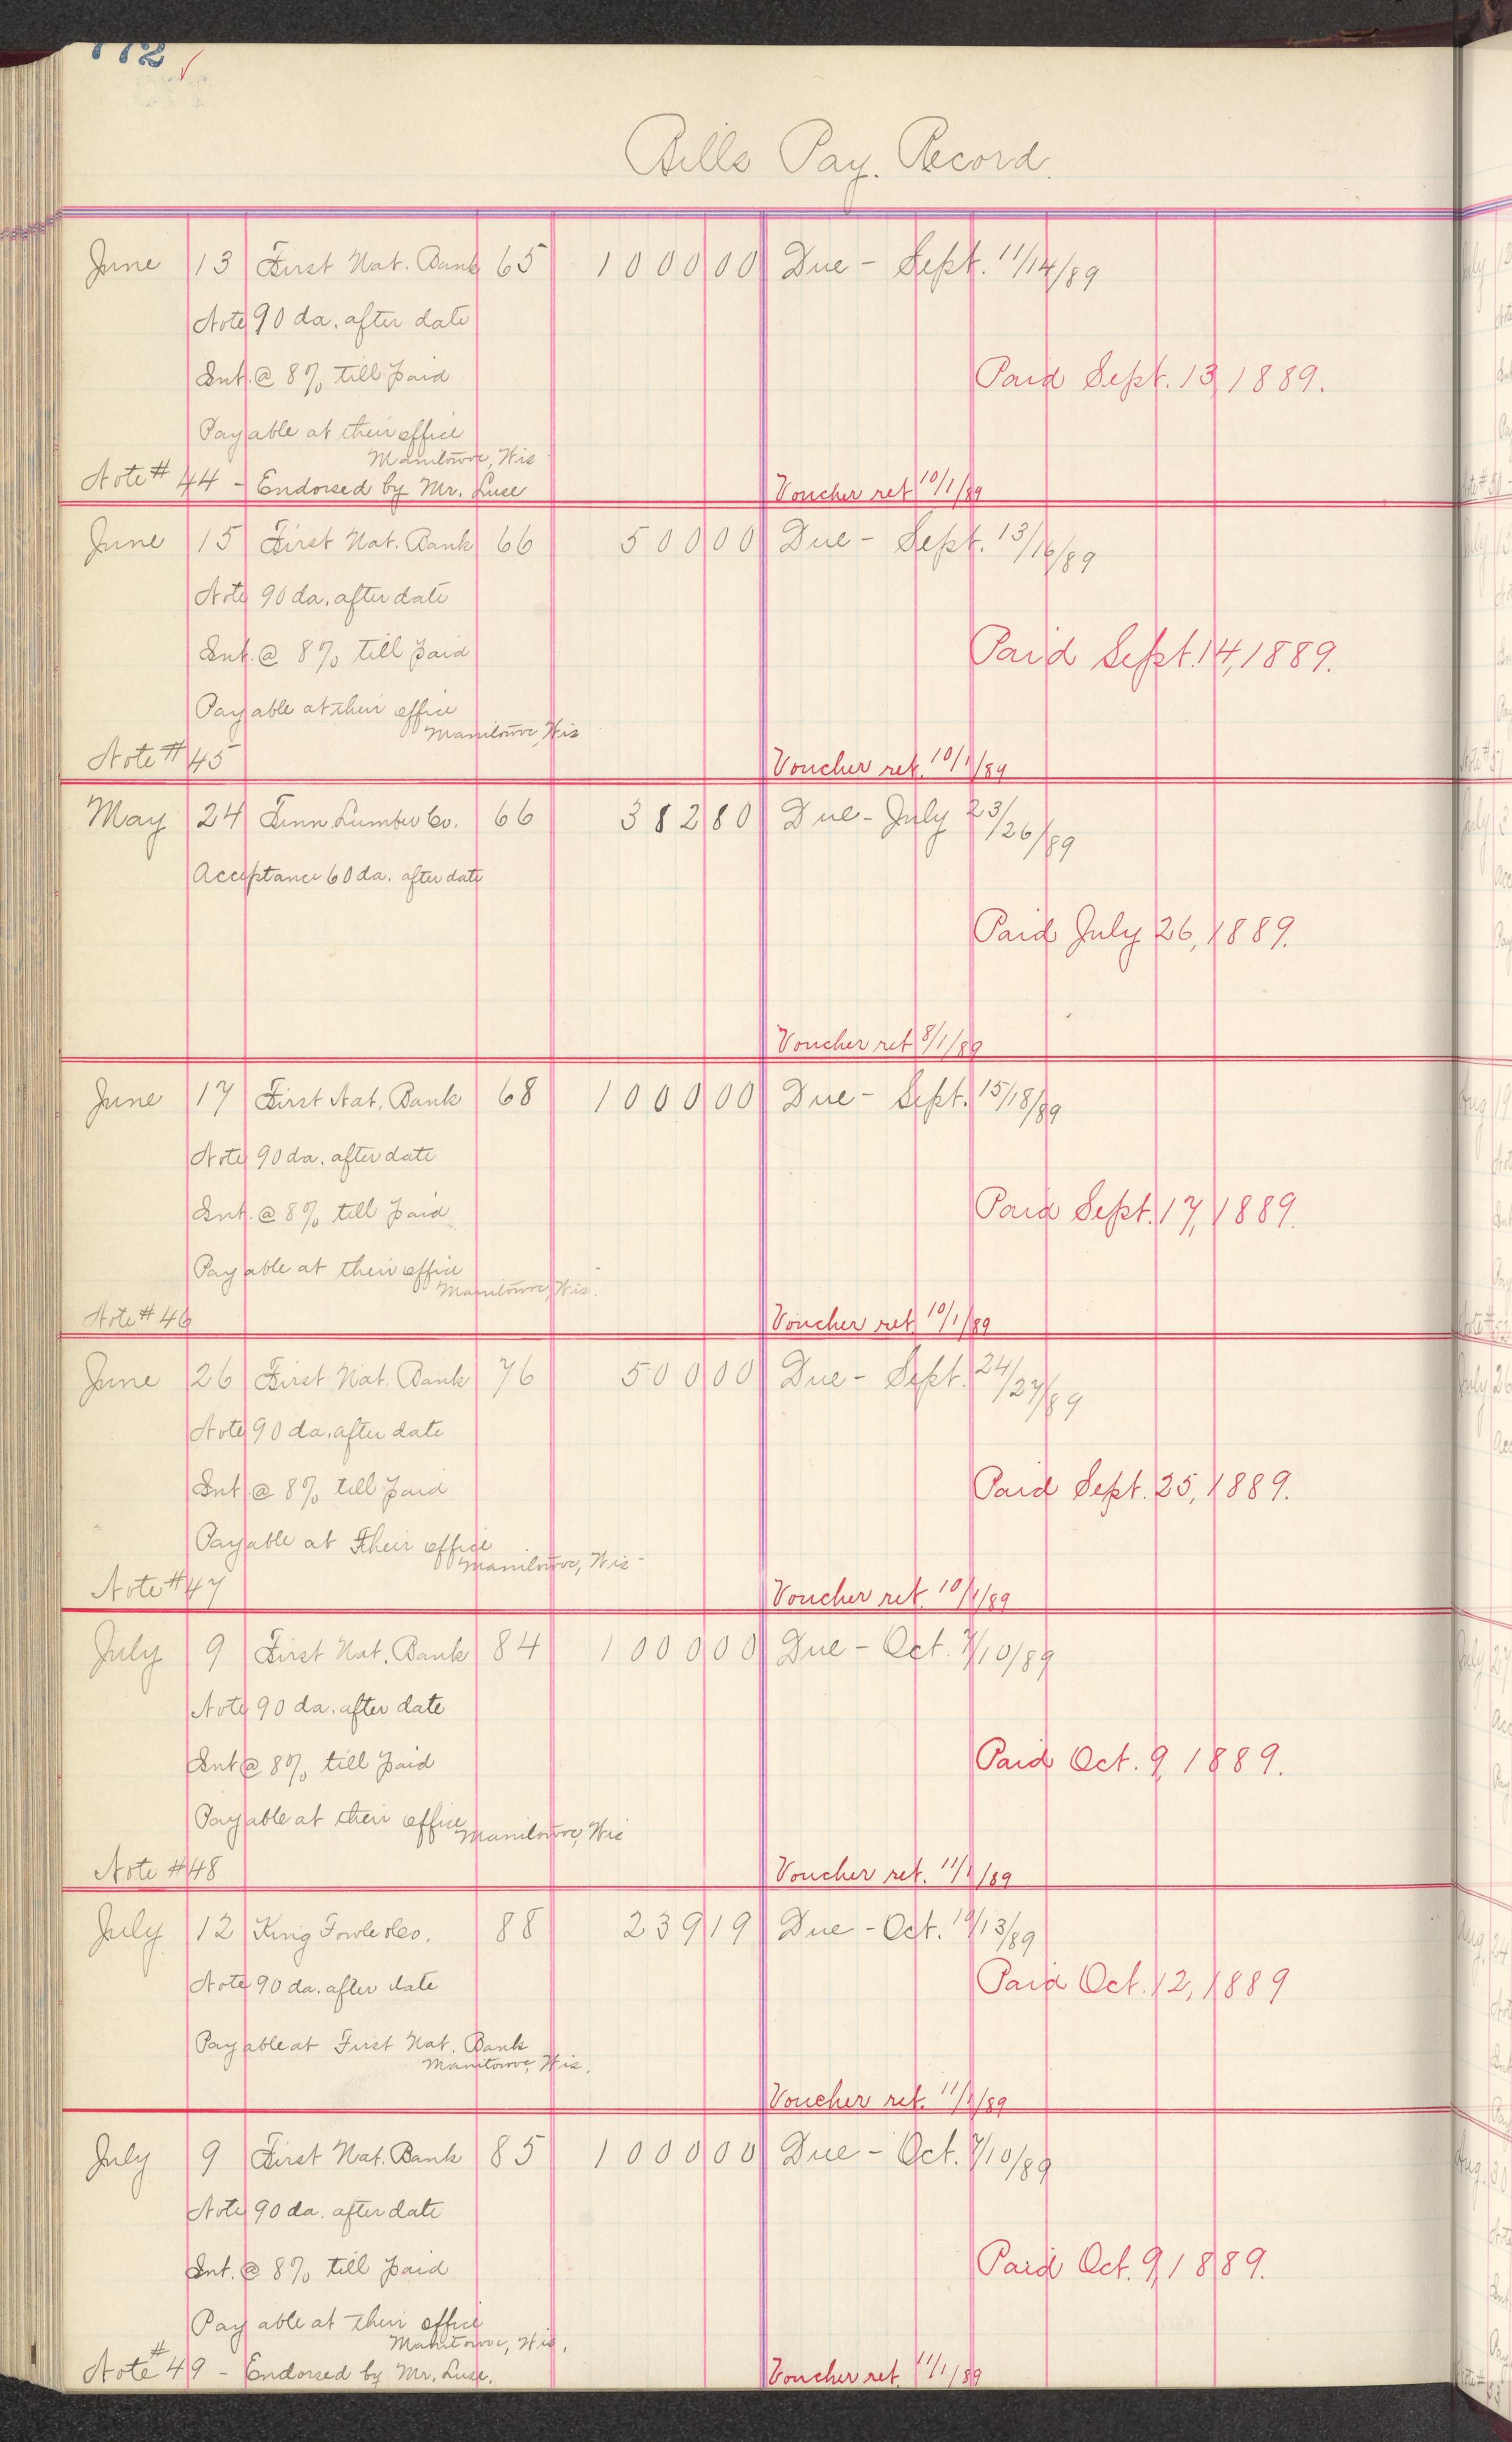 772 ✓
Bills Pay. Record.
June 13 First Nat. Bank 65 1000 00 Due - Sept. 11/14/89
Note 90 da. after date
Int. @ 8% till paid Paid Sept. 13, 1889.
Payable at their office
Manitowoc, Wis
Note # 44 - Endorsed by Mr. Luse Voucher ret 10/1/89
June 15 First Nat. Bank 66 500 00 Due - Sept. 13/16/89
Note 90 da. after date
Int. @ 8% till paid Paid Sept. 14, 1889.
Payable at their office
Manitowoc, Wis
Note # 45 Voucher ret. 10/1/89
May 24 Lumber Co. 66 382 80 Due - July 23/26/89
Acceptance 60 da. after date
Paid July 26, 1889.
Voucher ret 8/1/89
June 17 First Nat. Bank 68 1000 00 Due - Sept. 15/18/89
Note 90 da. after date
Int. @ 8% till paid Paid Sept. 17, 1889.
Payable at their office
Manitowoc, Wis.
Note # 46 Voucher ret. 10/1/89
June 26 First Nat. Bank 76 500 00 Due - Sept. 24/27/89
Note 90 da. after date
Int @ 8% till paid Paid Sept. 25, 1889.
Payable at Their office
Manitowoc, Wis -
Note # 47 Voucher ret. 10/1/89
July 9 First Nat. Bank 84 1000 00 Due - Oct. 7/10/89
Note 90 da. after date
Int @ 8% till paid Paid Oct. 9, 1889.
Payable at their office
Manitowoc, Wis
Note # 48 Voucher ret. 11/1/89
July 12 King Fowle & Co. 88 239 19 Due - Oct. 10/13/89
Note 90 da. after date Paid Oct. 12, 1889
Payable at First Nat. Bank
Manitowoc, Wis.
Voucher ret. 11/1/89
July 9 First Nat. Bank 85 1000 00 Due - Oct. 7/10/89
Note 90 da. after date
Int. @ 8% till paid Paid Oct. 9, 1889.
Payable at their office
Manitowoc, Wis.
Note # 49 - Endorsed by Mr. Luse. Voucher ret. 11/1/89